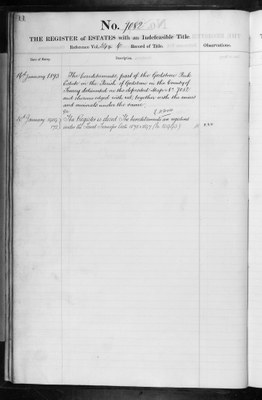 11
No. 7082
THE REGISTER of ESTATES with an Indefeasible Title
Reference Vol. Record of Title. Observations.
Date of Entry. Description
19th January 1893 The hereditaments part of the Godstone
Estate in the Parish of Godstone in the County of
Surrey delineated in the deposited map No. 7082
and thereon edged with red, together with the mines
and minerals under the same.
January 1909 This Register is closed. The hereditaments are registered
under the Land Transfer Acts 1875 & 1897